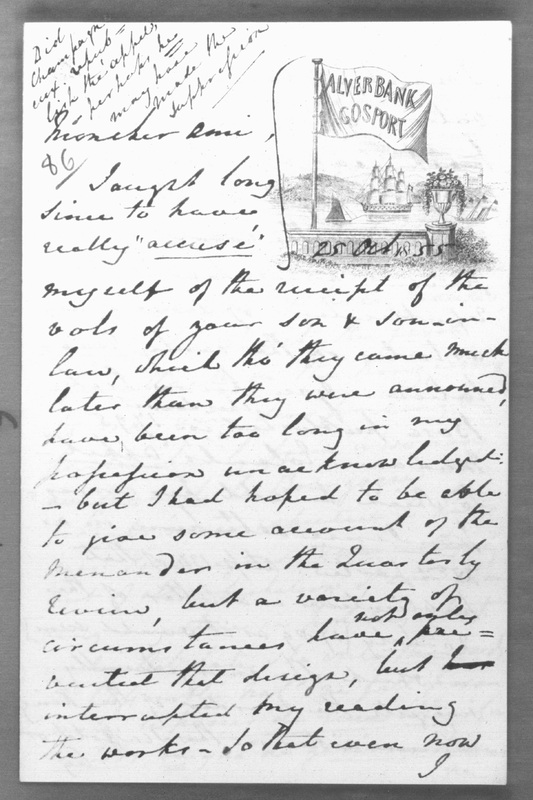 Did
Champagn
eux repub-
lish the appel,
perhaps he
may have
made the
suppression
ALVERBANK
GOSPORT
Mon cher ami,
86/
I ought long
since to have
really "accusé"
25 Oct 55
myself of the receipt of the
vols of your son & son-in-
law, which tho' they came much
later than they were announced,
have, been too long in my
possession unacknowledged:
- but I had hoped to be able
to give some account of the
Menander in the Quarterly
Review, but a variety of
circumstances have, not only pre=
vented that design, but
interrupted my reading
the works - So that even now
I